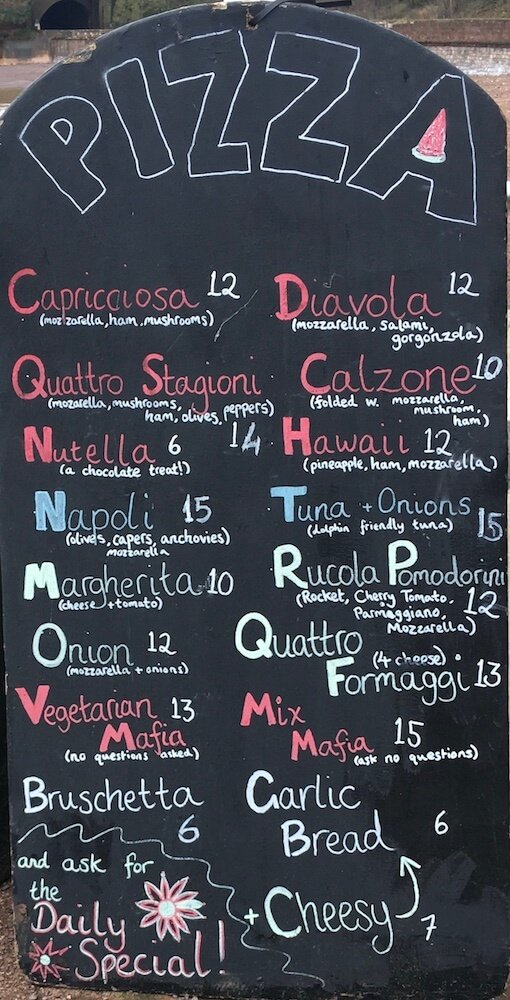 PIZZA
Capricciosa 12
(mozzarella, ham, mushrooms)
Quattro Stagioni
(mozarella, mushrooms,
ham, olives, peppers)
14
Nutella 6
(a chocolate treat!)
Napoli 15
(olives, capers, anchovies)
mozzarella
Margherita 10
(cheese + tomato)
Onion 12
(mozzarella + onions)
Vegetarian 13
Mafia
(no questions asked)
Bruschetta
6
and ask for
the
Daily
Special!
Diavola 12
(mozzarella, salami,
gorgonzola)
Calzone 10
(folded w. mozzarella,
mushroom,
ham)
Hawaii 12
(pineapple, ham, mozzarella)
Tuna + Onions
(dolphin friendly tuna) 15
Rucola Pomodorini
(Rocket, Cherry Tomato,
Parmeggiano, 12
Mozzarella)
Quattro
(4 cheese)
Formaggi 13
Mix
Mafia 15
(ask no questions)
Garlic
Bread 6
+ Cheesy 7